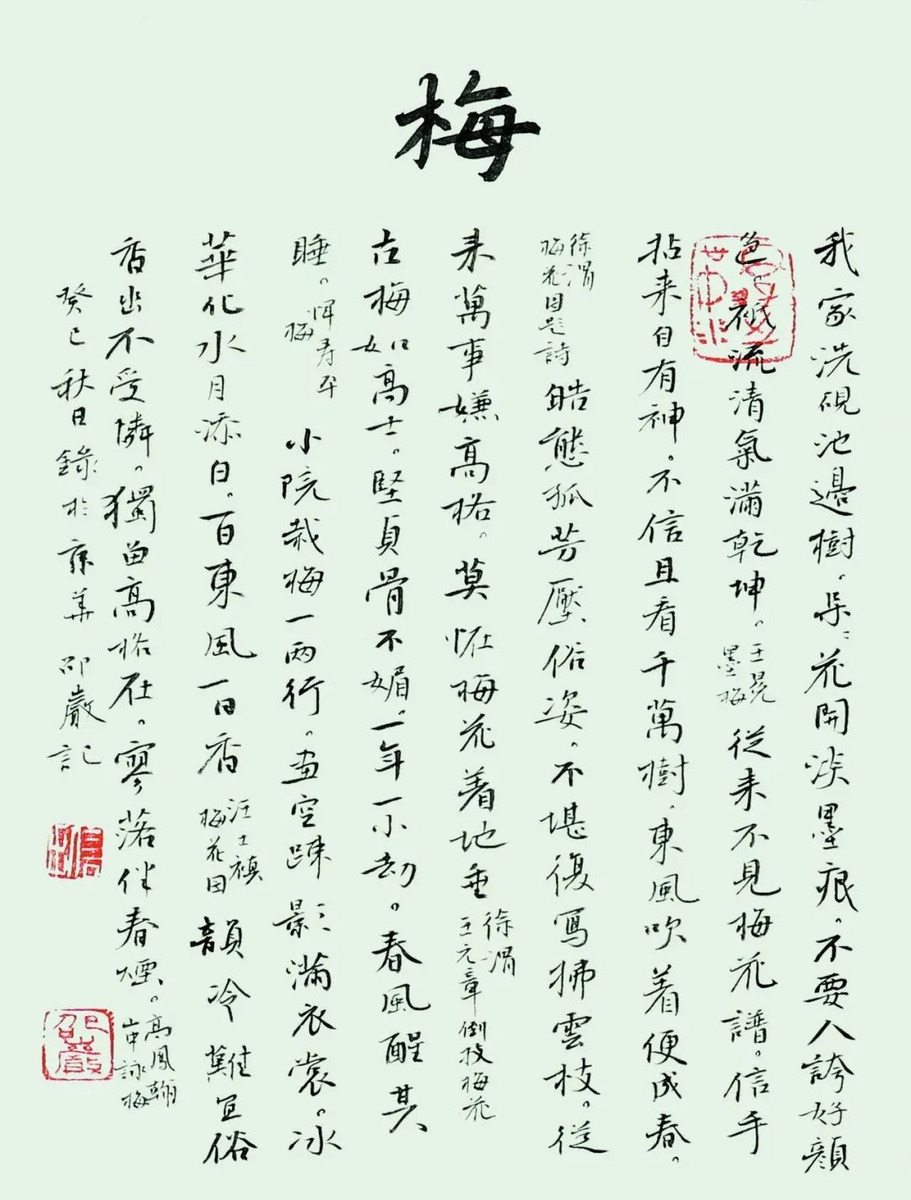 梅
我家洗硯池邊樹。朵〻花開淡墨痕。不要人誇好顔
色。祇流清氣滿乾坤。王冕墨梅 從来不見梅花譜。信手
拈来自有神。不信且看千萬樹。東風吹着便成春。
徐渭梅花圖題詩 皓態孤芳壓俗姿。不堪復寫拂雲枝。從
来萬事嫌高格。莫怪梅花着地垂 徐渭王元章倒枝梅花
古梅如高士。堅貞骨不媚。一年一小劫。春風醒其
睡。惲壽平梅 小院栽梅一兩行。畫空疎影〻滿衣裳。冰
華化水月添白。一日東風一日香 汪士慎梅花图 韻冷難宜俗
香出不受憐。獨留高格在。寥落伴春煙。高鳳翰詠梅
癸巳秋日錄於 邵巖記
邵巖